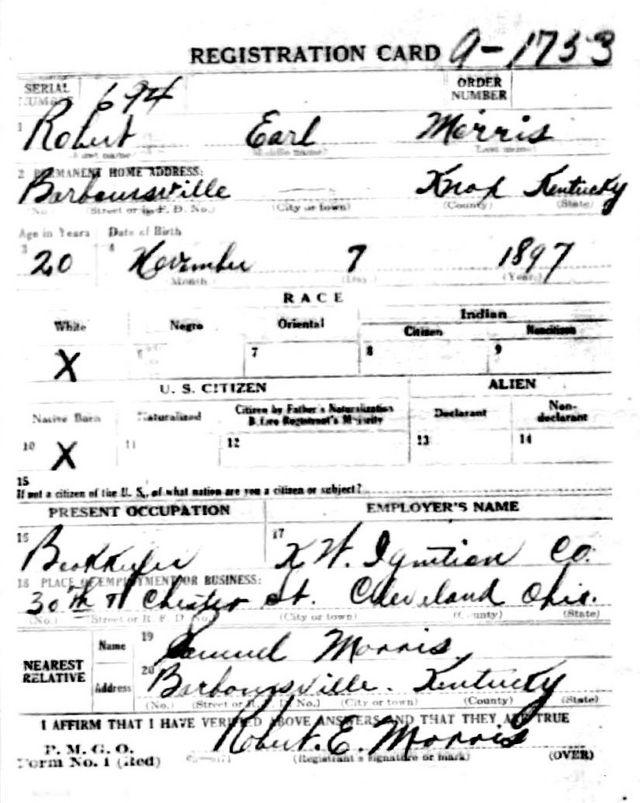 REGISTRATION CARD A-1733
SERIAL NUMBER 694 ORDER NUMBER
1 Robert Earl Morris
First name (Middle name) Last name
2 PERMANENT HOME ADDRESS:
Barboursville Knox Kentucky
(No.) (Street or R. F. D. No.) (City or town) (County) (State)
Age in Years Date of Birth
3 20 4 November 7 1897
Month (Day) (Year)
RACE
White Negro Oriental Indian
Citizen Noncitizen
X 7 8 9
U. S. CITIZEN ALIEN
Native Born Naturalized Citizen by Father's Naturalization Before Registrant's Majority Declarant Non-declarant
10 X 11 12 13 14
15
If not a citizen of the U. S., of what nation are you a citizen or subject?
PRESENT OCCUPATION EMPLOYER'S NAME
16 17
K W. Ignition Co.
18 PLACE OF EMPLOYMENT OR BUSINESS:
30th Chester St. Cleveland Ohio.
(No.) (Street or R. F. D. No.) (City or town) (County) (State)
NEAREST RELATIVE
Name 19 Samuel Morris
Address 20 Barboursville. Kentucky
(No.) (Street or R. F. D. No.) (City or town) (County) (State)
I AFFIRM THAT I HAVE VERIFIED ABOVE ANSWERS AND THAT THEY ARE TRUE
P. M. G. O.
Form No. 1 (Red) Robert. E. Morris
(Registrant's signature or mark) (OVER)